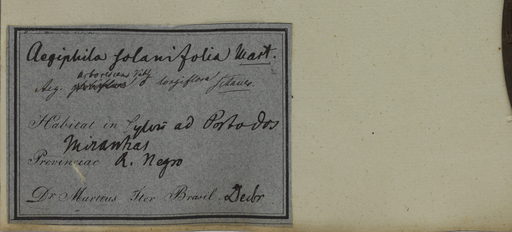 Aegiphila solanifolia Mart.
arborescens
Aeg. longiflora Schauer.
Habitat in Sylvis ad Porto dos
Miranhas
Provinciae R. Negro
Dr. Martius Iter Brasil. Decbr